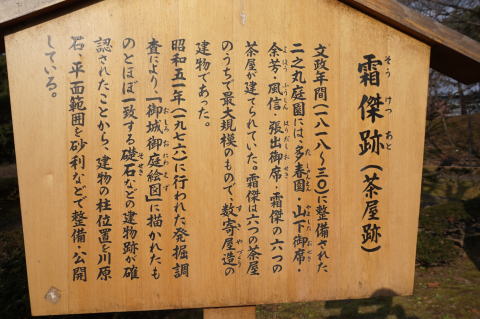 そう けつ あと
霜傑跡(茶屋跡)
文政年間(一八一八〜三〇)に整備された
二之丸庭園には、多春園・山下御席・
よほう ふうしん はりだしおせき
余芳・風信・張出御席・霜傑の六つの
茶屋が建てられていた。霜傑は六つの茶屋
のうちで最大規模のもので、数寄屋造の
建物であった。
昭和五一年(一九七六)に行われた発掘調
査により、「御城御庭絵図」に描かれたも
のとほぼ一致する礎石などの建物跡が確
認されたことから、建物の柱位置を川原
石、平面範囲を砂利などで整備・公開
している。